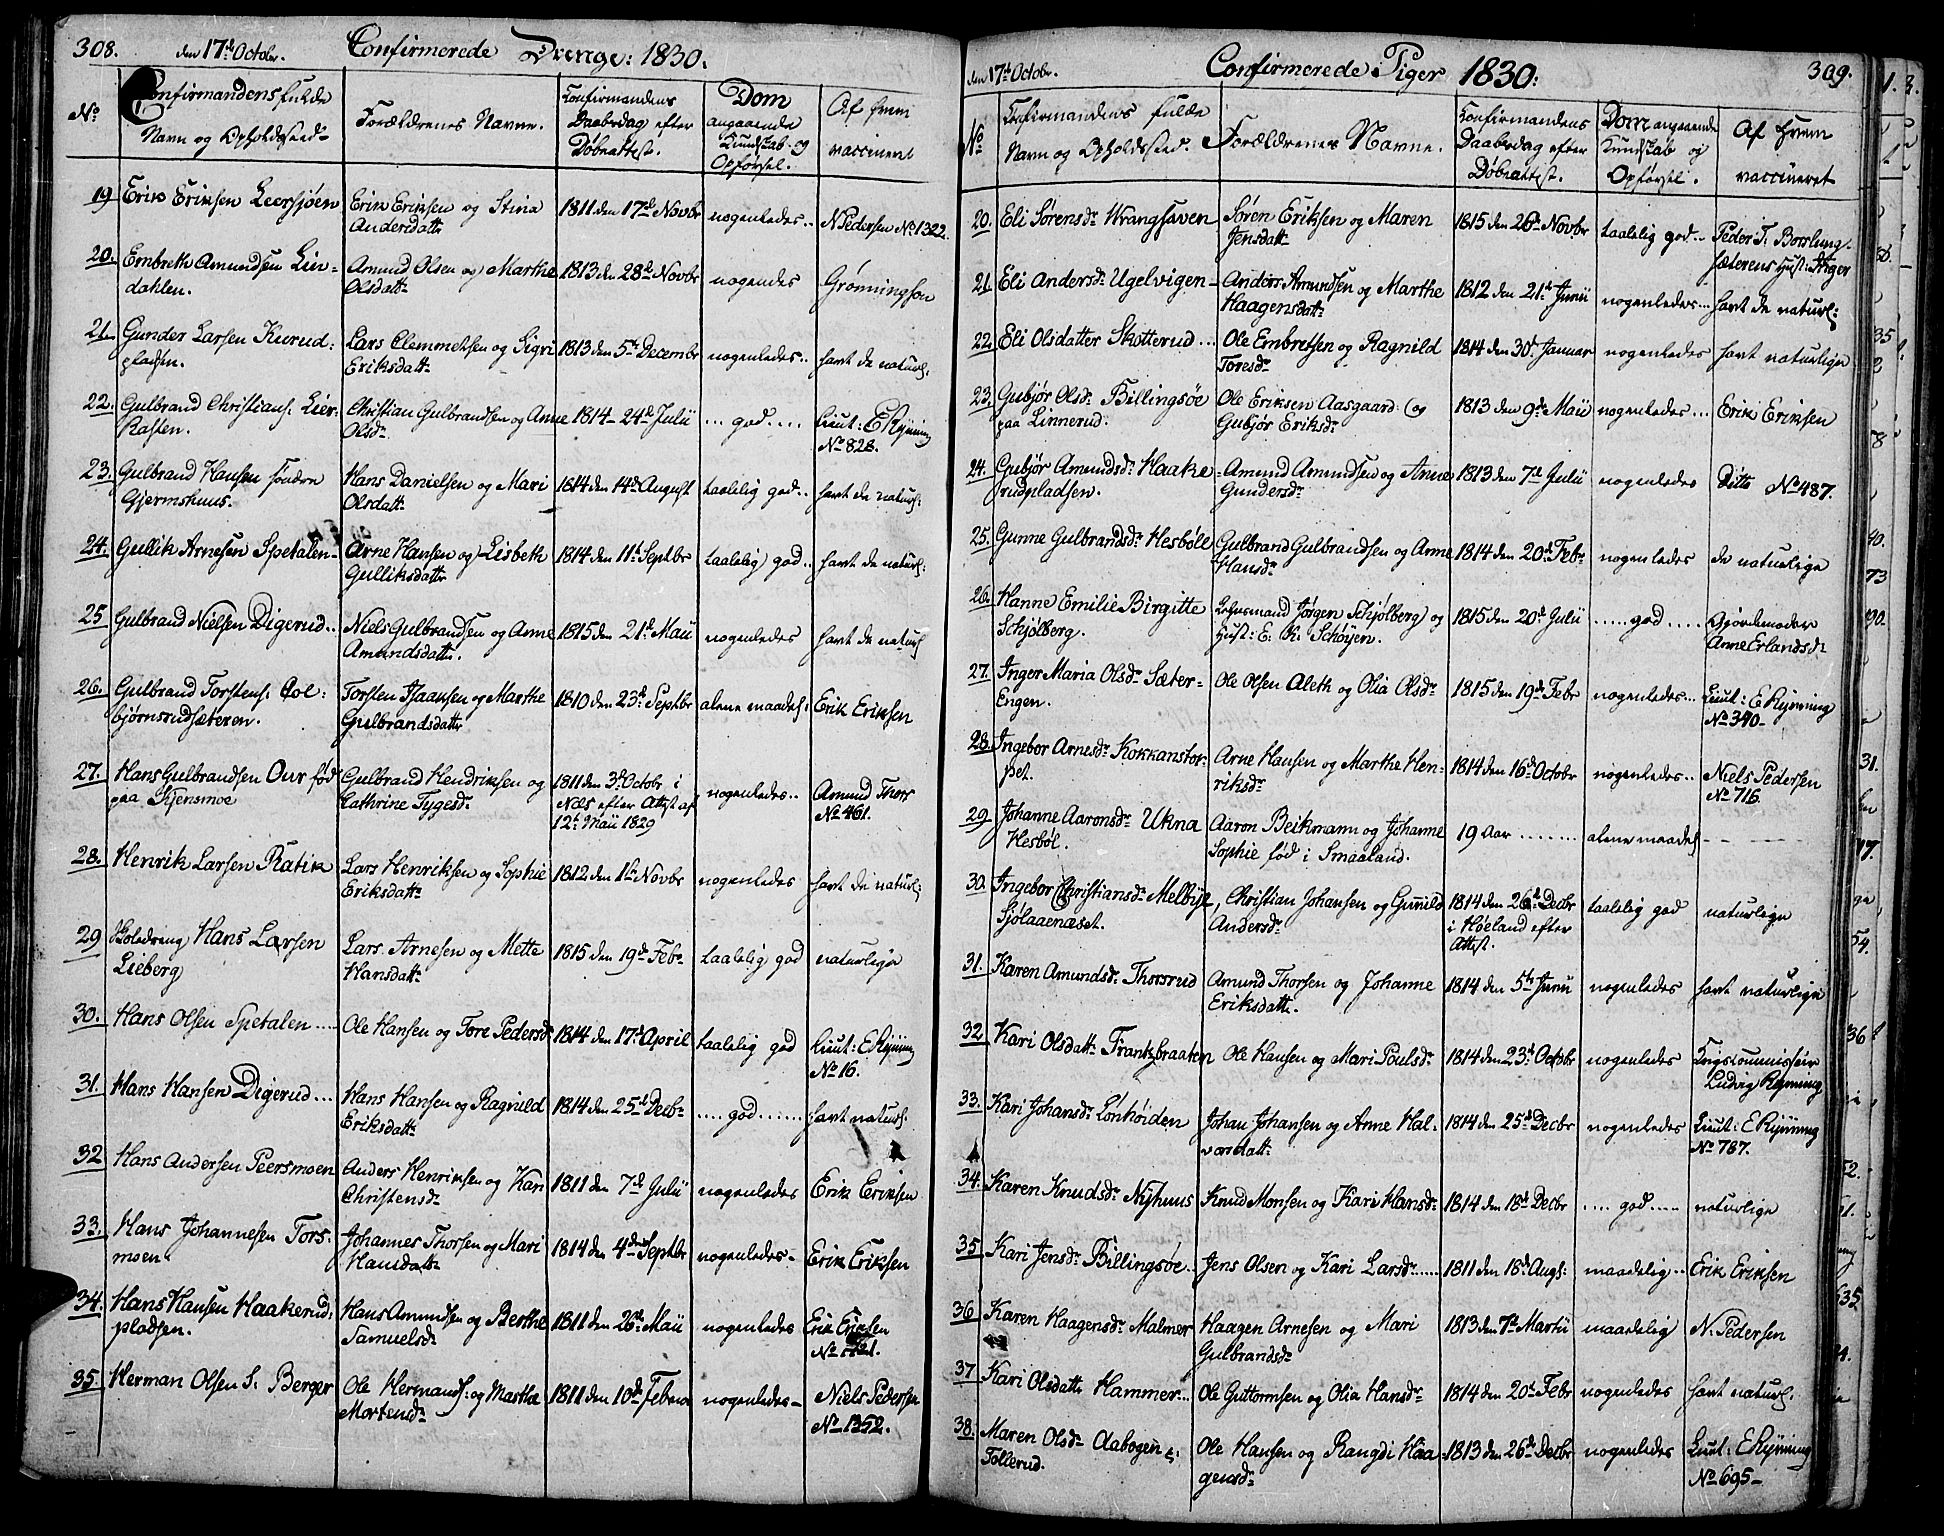 308. den 17de Octobr. Confirmerede Drenge: 1830.
No Confirmandens fulde Navn og Opholdssted
Forældrenes Navne.
Confirmandens Daabsdag efter Døbeattest.
Dom angaaende Kundskab og Opførsel.
Af hvem vaccineret
19 Erik Eriksen Leersjøen
Erik Eriksen og Stina Andersdattr
1811 den 17de Novbr
nogenledes..
N Pedersen No 1322.
20. Embreth Amundsen Lier-dahlen.
Amund Olsen og Marthe Olsdattr
1813 den 28de Novbr
nogendes
Grønningsen
21. Gunder Larsen Kurud-pladsen.
Lars Clemmetsen og Sigri Eriksdattr
1813 den 5te Decembr
nogenledes..
havt de naturl:
22. Gulbrand Christians: Lier-kasten.
Christian Gulbrandsen og Anne Olsdr
1814 - 24de Julii
... god ....
Lieut: E Rynning No 828.
23. Gulbrand Hansen søndre Gjermshuus.
Hans Danielsen og Mari Olsdattr
1814 den 14de August
taalelig god..
havt de naturl:
24. Gullik Arnesen Spetalen-
Arne Hansen og Lisbeth Gulliksdattr
1814 den 11te Septbr
taalelig god..
havt de naturl:
25 Gulbrand Nielsen Digerud..
Niels Gulbrandsen og Anne Amundsdattr.
1815 den 21de Maii
nogenledes
havt de naturl
26. Gulbrand Torstens: Col:bjørnsrudsæteren.
Torsten Isaaksen og Marthe Gulbrandsdattr
1810 den 23de Septbr
alene maadel:
Erik Eriksen
27. Hans Gulbrandsen Our fød paa Kjensmoe
Gulbrand Hendriksen og Cathrine Tygesdr
1811 den 3de Octobr i Næs efter Attest af 12te Maii 1829
nogenledes..
Amund Thors No 461.
28. Henrik Larsen Ratik
Lars Henriksen og Sophie Eriksdattr
1812 den 1te Novbr
nogenledes
havt de naturl:
29 Skoledreng Hans Larsen Lieberg
Lars Arnesen og Mette Hansdattr
1815 den 19de Febr
taalelig god
naturlige
30. Hans Olsen Spetalen ....
Ole Hansen og Tore Pedersdr
1814 den 17de April
taalelig god
Lieut: E Rynning No 16.
31. Hans Hansen Digerud ...
Hans Hansen og Ragnild Eriksdattr
1814 den 25de Decbr
.... god ......
havt naturl.
32 Hans Andersen Peersmoen
Anders Henriksen og Kari Christensdr
1811 den 7de Julii
nogenledes
Erik Eriksen
33. Hans Johannesen Tors-moen.
Johannes Thorsen og Mari Hansdattr
1814 den 4de Septbr
nogenledes-
Erik Eriksen
34. Hans Hansen Haakerud-pladsen.
Hans Amundsen og Berthe Samuelsdr
1811 den 26de Maii
nogenledes
Erik Eriksen
35. Herman Olsen S. Berger
Ole Hermands: og Martha Mortensdr
1811 den 10de Februar
nogenledes-
Niels Pedersen No 1352.
den 17de Octobr. Confirmerede Piger 1830: 309.
No Confirmandens fulde Navn og Opholdssted.
Forældrenes Navne.
Confirmandens Daabsdag efter Døbeattest.
Dom angaaende Kundskab og Opførsel.
Af hvem vaccineret
20. Eli Sørensdr Wranghaven
Søren Eriksen og Maren Jensdattr
1815 den 26de Novbr
taalelig god..
Peder T.
21. Eli Andersdr Ugelvigen-
Anders Amundsen og Marthe Haagensdattr
1812 den 21de Junii
nogenledes...
havt de naturl:
22. Eli Olsdatter Skotterud...
Ole Embretsen og Ragnild Toresdr
1814 den 30te Januar
nogenledes
havt naturlige
23. Gubjør Olsdr Billingsøe paa Linnerud.
Ole Eriksen Aasgaard: og Gubjør Eriksdr
1813 den 9de Maii
nogenledes...
Erik Eriksen
24. Gubjør Amundsdr Haake-rudpladsen.
Amund Amundsen og Anne Gundersdr
1813 den 7de Julii
nogenledes
Ditto No 487.
25. Gunne Gulbrandsdr Hesbøll
Gulbrand Gulbrandsen og Anne Hansdr
1814 den 20de Febr
nogenledes
de naturlige
26. Hanne Emilie Birgitte Schjølberg.
Lehnsmand Jørgen Schjølberg og Hust: E. K. Schøyen.
1815 den 20de Julii
......god.....
Gjordemoder Anne Erlandsdr
27. Inger Maria Olsdr Sæter-Engen.
Ole Olsen Aleth og Olia Olsdr
1815 den 19de Febr
nogenledes..
Lieut: E Rynning No 340-
28. Ingebor Arnesdr Kokkanstor-pet.
Arne Hansen og Marthe Hen-riksdr
1814 den 16de Octobr
nogenledes..
Niels Pedersen No 716.
29 Johanne Aaronsdr Ukna Hesbøl.
Aaron Beikmann og Johanne Sophie fød i Smaaland.
19 Aar ........
alene maadel
- - - -
30. Ingebor Christiansdr Melbye, Sjølaaenæset.
Christian Johansen og Gunnild Andersdr
1814 den 26de Decbr i Høeland efter Attest.
taalelig god
naturlige
31. Karen Amundsdr Thorsrud
Amund Thorsen og Johanne Eriksdattr.
1814 den 5te Junii
nogenledes
havt naturlige
32. Kari Olsdattr Frantzbraaten
Ole Hansen og Mari Poulsdr
1814 den 23de Octobr
nogenledes
Krigscommissair Ludvig Rynning
33. Kari Johansdr Lønhøiden
Johan Johansen og Anne Hal-vorsdattr
1814 den 25de Decbr
nogenledes
Lieut: E Rynning No 787.
34. Karen Knudsdr Nyhuus
Knud Monsen og Kari Hansdr
1814 den 18de Decbr
.... god .....
naturlige
35 Kari Jensdr Billingsøe..
Jens Olsen og Kari Larsdr.....
1811 den 18de Augs:
maadelig..
Erik Eriksen
36 Karen Haagensdr Malmer
Haagen Arnesen og Mari Gulbrandsdr
1813 den 7de Martii
maadelig
N. Pedersen
37 Kari Olsdattr Hammer...
Ole Guttormsen og Olia Hansdr
1814 den 20de Febr
nogenledes
havt naturl:
38. Maren Olsdr Aabogen e; Tollerud.
Ole Hansen og Rangdi Haa-gensdr
1813 den 26de Decbr
nogenledes
Lieut: E Rynning No 695-